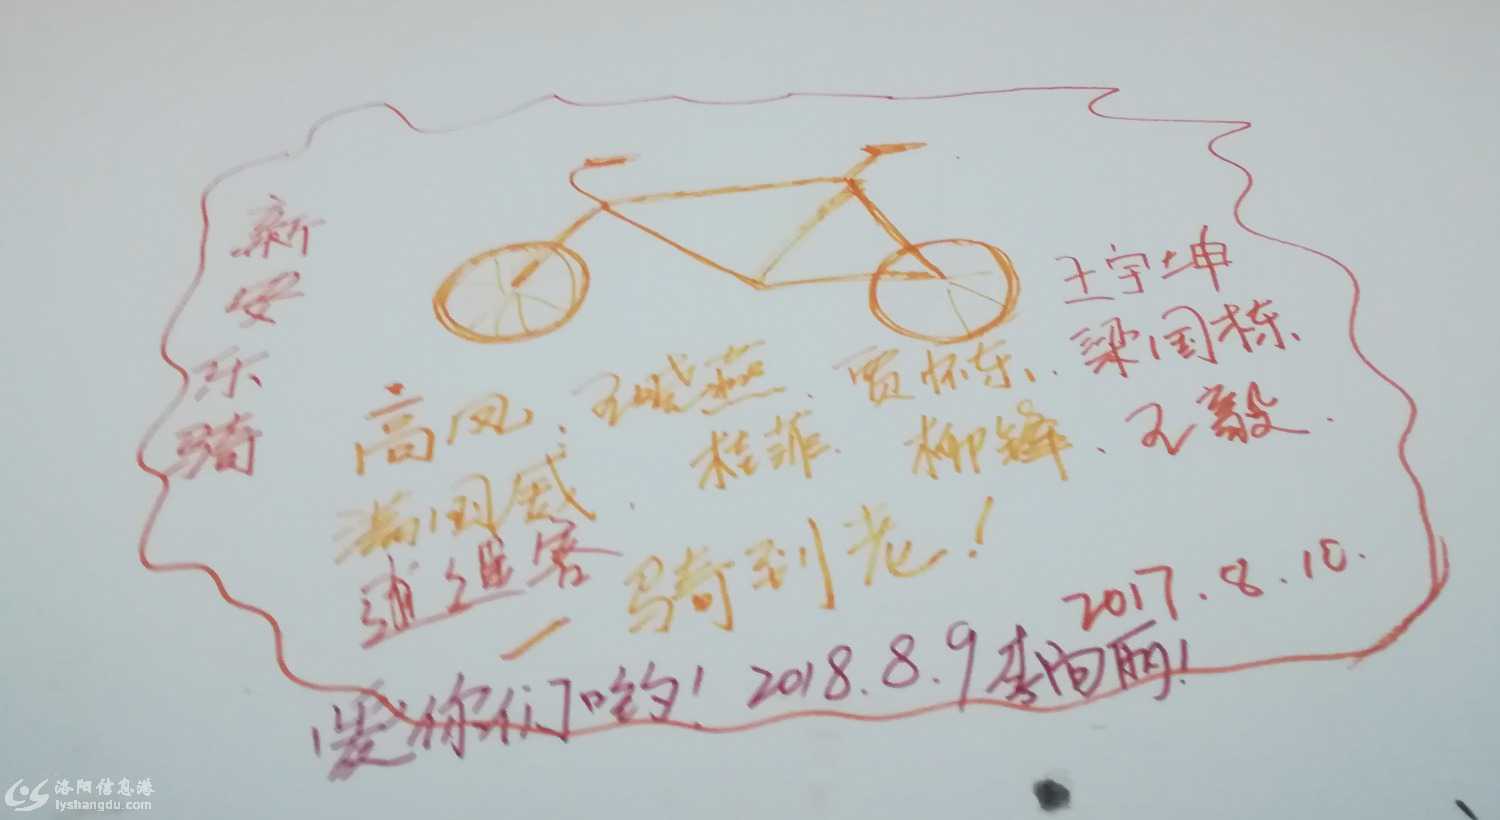 新安乐骑
王宇坤
高凤、王晓燕、贾怀东、梁国栋、
满国威、桂菲、柳锋、王毅.
逍遥客
一骑到老!
2017.8.10.
爱你们哟! 2018.8.9 李向丽!
洛阳信息港
lyshangdu.com